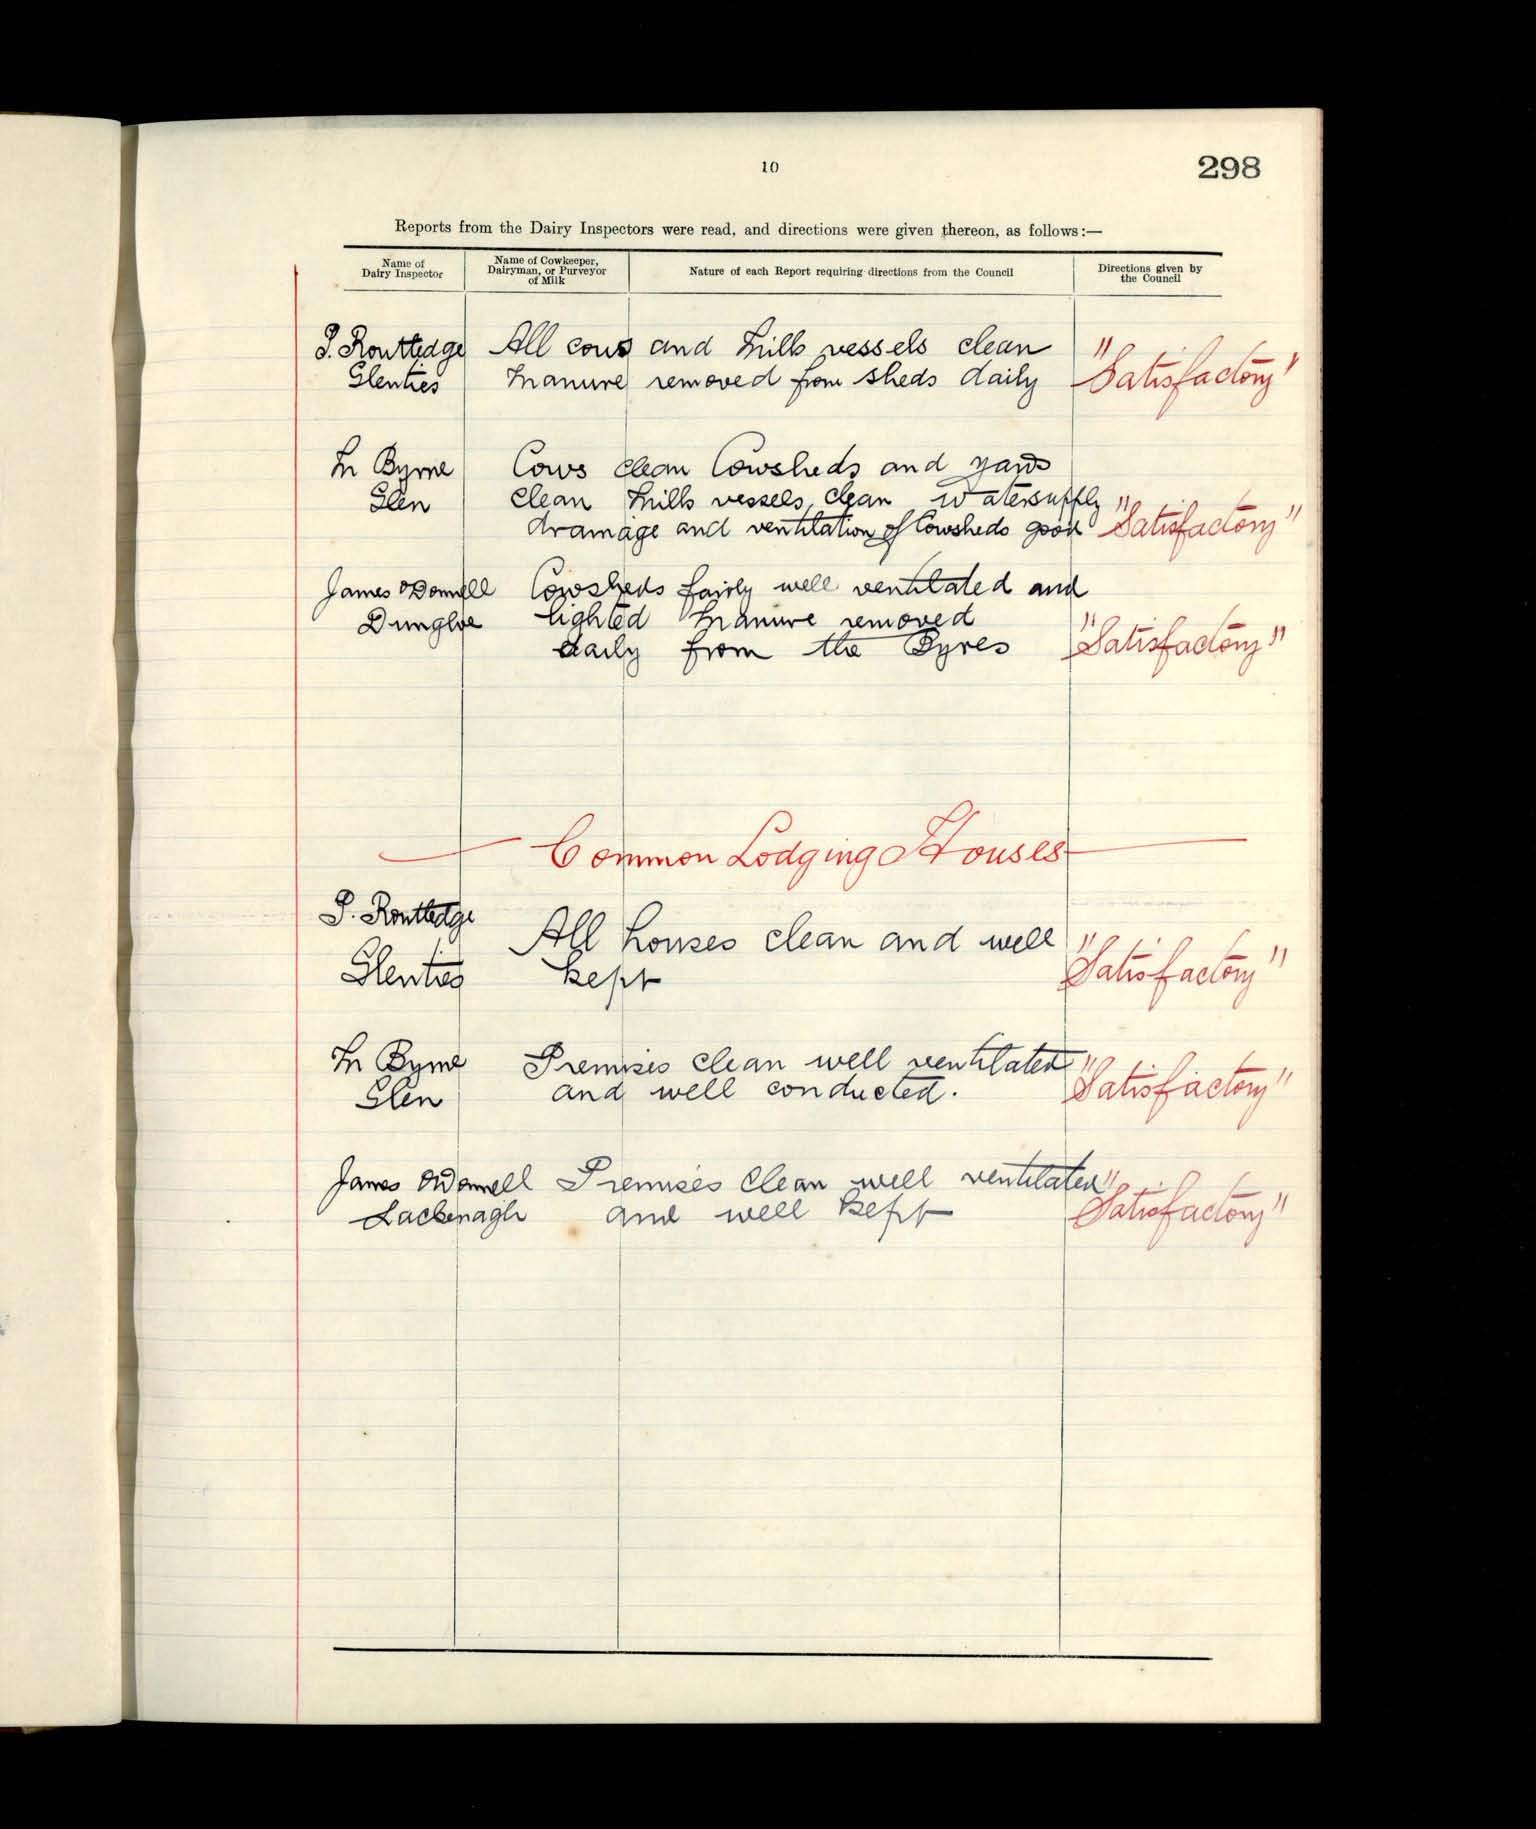 10
298
Reports from the Dairy Inspectors were read, and directions were given thereon, as follows:—
Name of Dairy Inspector | Name of Cowkeeper, Dairyman, or Purveyor of Milk | Nature of each Report requiring directions from the Council | Directions given by the Council
P. Routledge All cows and milk vessels clean
Glenties Manure removed from sheds daily "Satisfactory"
M Byrne Cows clean Cowsheds and yards
Glen clean Milk vessels clean Watersupply
drainage and ventilation of Cowsheds good "Satisfactory"
James O'Donnell Cowsheds fairly well ventilated and
Dungloe lighted Manure removed
daily from the Byres "Satisfactory"
Common Lodging Houses
P. Routledge
All houses clean and well
Glenties kept "Satisfactory"
M Byrne Premises clean well ventilated
Glen and well conducted. "Satisfactory"
James O'Donnell Premises Clean well ventilated
Lackenagh and well kept "Satisfactory"